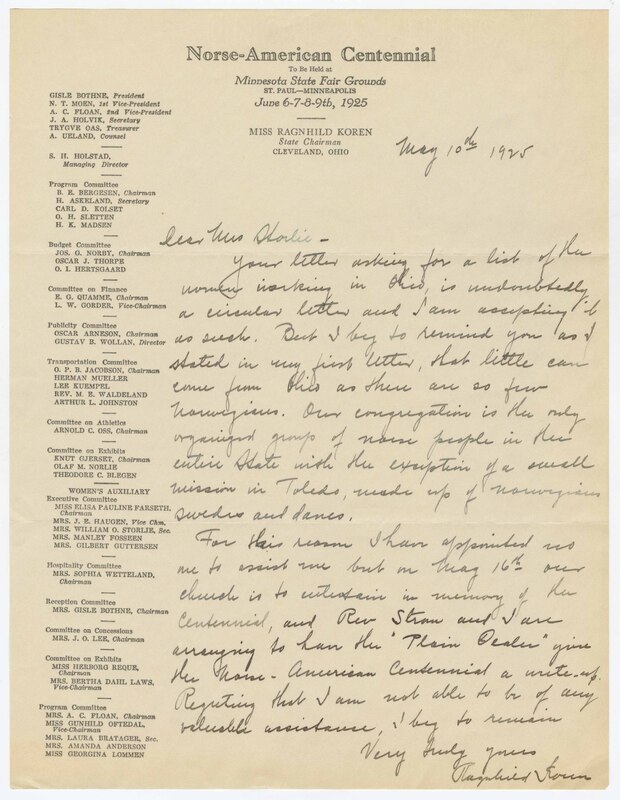 Norse-American Centennial
To Be Held at
Minnesota State Fair Grounds
ST. PAUL—MINNEAPOLIS
June 6-7-8-9th, 1925
MISS RAGNHILD KOREN
State Chairman
CLEVELAND, OHIO
GISLE BOTHNE, President
N. T. MOEN, 1st Vice-President
A. C. FLOAN, 2nd Vice-President
J. A. HOLVIK, Secretary
TRYGVE OAS, Treasurer
A. UELAND, Counsel
S. H. HOLSTAD,
Managing Director
Program Committee
B. E. BERGESEN, Chairman
H. ASKELAND, Secretary
CARL D. KOLSET
O. H. SLETTEN
H. K. MADSEN
Budget Committee
JOS. G. NORBY, Chairman
OSCAR J. THORPE
O. I. HERTSGAARD
Committee on Finance
E. G. QUAMME, Chairman
L. W. GORDER, Vice-Chairman
Publicity Committee
OSCAR ARNESON, Chairman
GUSTAV B. WOLLAN, Director
Transportation Committee
O. P. B. JACOBSON, Chairman
HERMAN MUELLER
LEE KUEMPEL
REV. M. E. WALDELAND
ARTHUR L. JOHNSTON
Committee on Athletics
ARNOLD C. OSS, Chairman
Committee on Exhibits
KNUT GJERSET, Chairman
OLAF M. NORLIE
THEODORE C. BLEGEN
WOMEN'S AUXILIARY
Executive Committee
MISS ELISA PAULINE FARSETH,
Chairman
MRS. J. E. HAUGEN, Vice Chm.
MRS. WILLIAM O. STORLIE, Sec.
MRS. MANLEY FOSSEEN
MRS. GILBERT GUTTERSEN
Hospitality Committee
MRS. SOPHIA WETTELAND,
Chairman
Reception Committee
MRS. GISLE BOTHNE, Chairman
Committee on Concessions
MRS. J. O. LEE, Chairman
Committee on Exhibits
MISS HERBORG REQUE,
Chairman
MRS. BERTHA DAHL LAWS,
Vice-Chairman
Program Committee
MRS. A. C. FLOAN, Chairman
MISS GUNHILD OFTEDAL,
Vice-Chairman
MRS. LAURA BRATAGER, Sec.
MRS. AMANDA ANDERSON
MISS GEORGINA LOMMEN
May 10th 1925
Dear Mrs Storlie -
Your letter asking for a list of the
women working in Ohio, is undoubtedly
a circular letter and I am accepting it
as such. But I beg to remind you as I
stated in my first letter, that little can
come from Ohio as there are so few
Norwegians. Our congregation is the only
organized group of norse people in the
entire State with the exception of a small
mission in Toledo, made up of norwegians
swedes and danes.
For this reason I have appointed no
one to assist me but on May 16th our
church is to entertain in memory of the
Centennial, and Rev Stron and I are
arranging to have the "Plain Dealer" give
the Norse-American Centennial a write-up.
Regretting that I am not able to be of any
valuable assistance, I beg to remain
Very truly yours
Ragnhild Koren